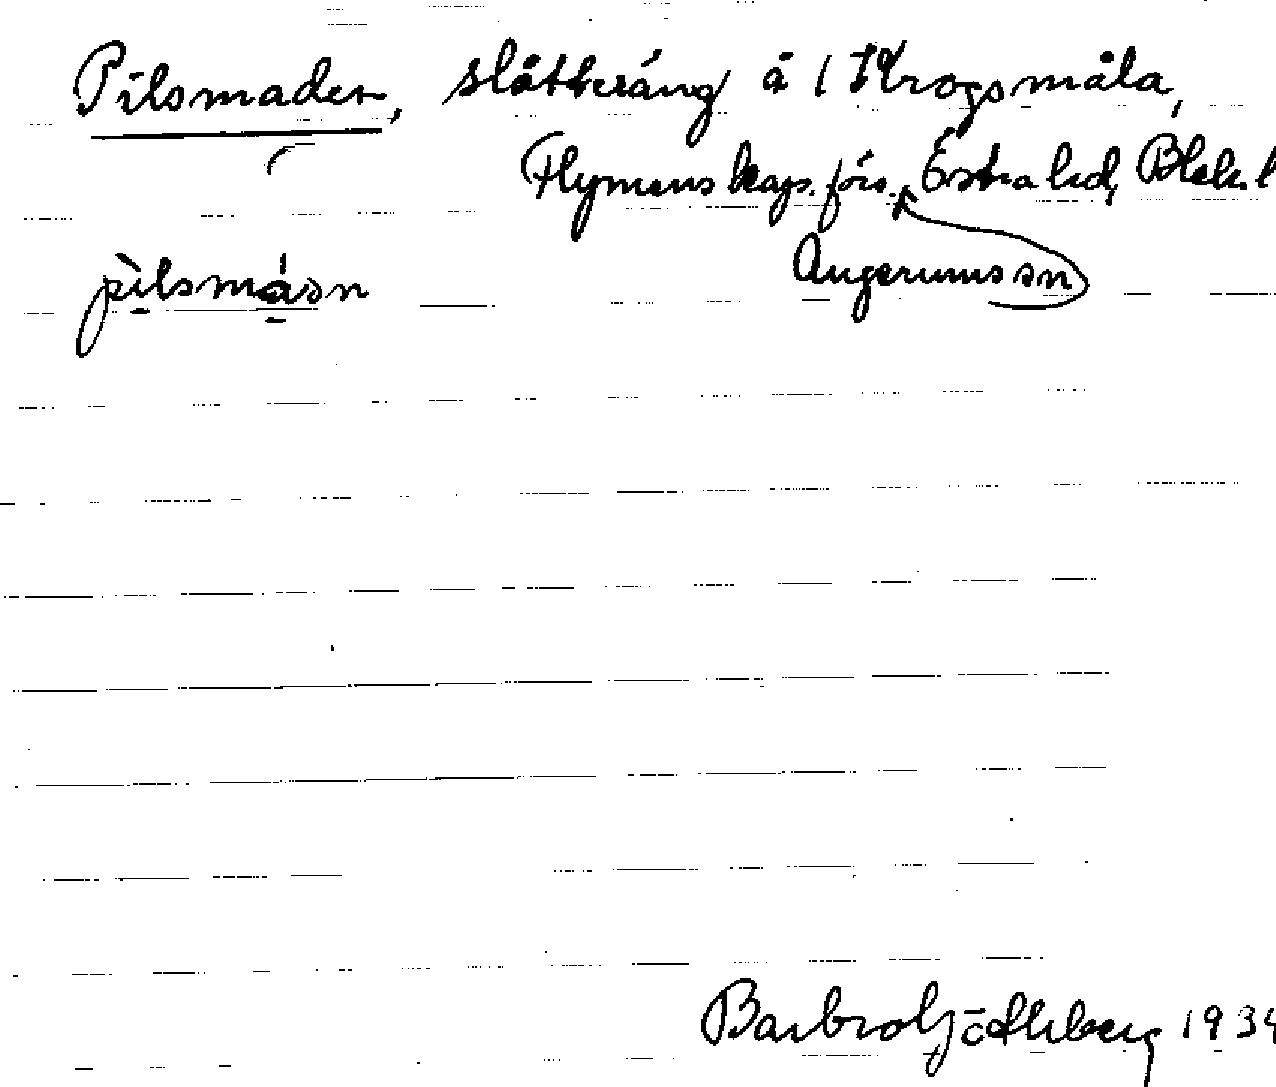 Pilsmaden, slåtteräng å 1 Krogsmåla,
Flymens kap. förs. Östra hd, Blek. l
Augerums sn
pìlsmáən
Barbro Göthberg 1934